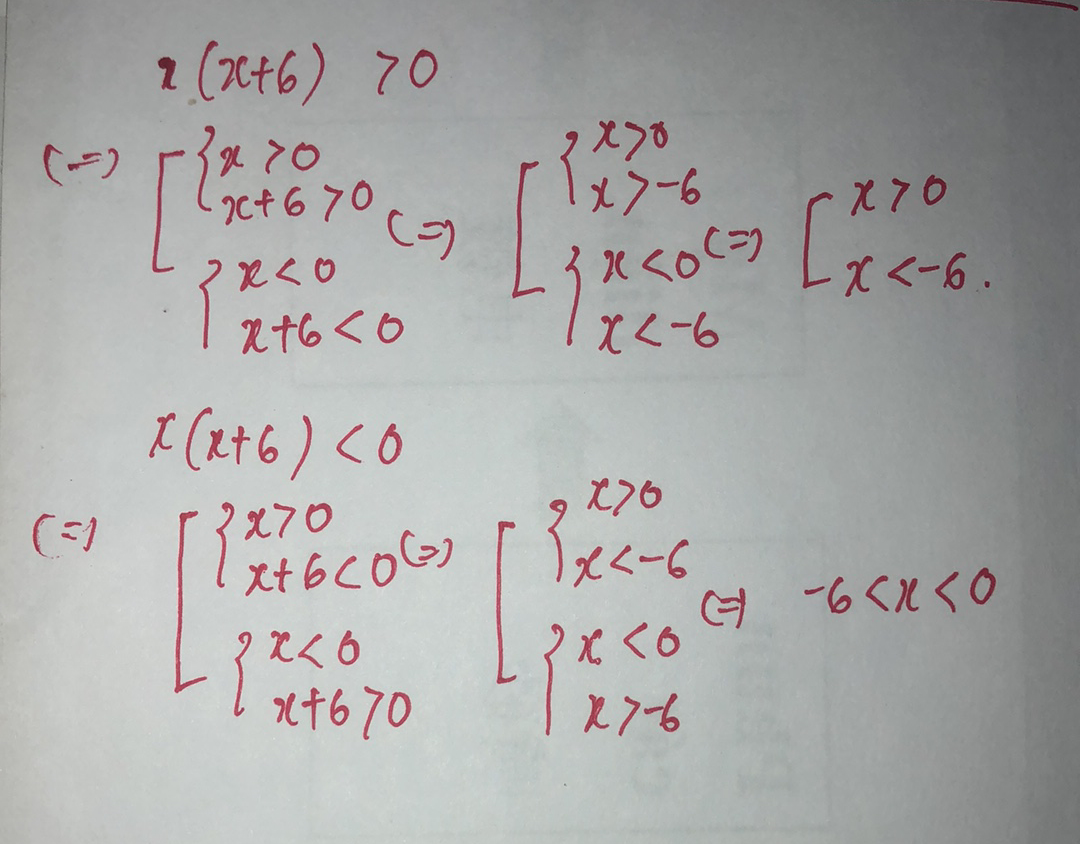 x(x+6) >0
(=) [ { x >0 x+6 >0 { x < 0 x+6 < 0 (=) [ { x>0 x >-6 { x <0 x <-6 (=) [ x > 0 x < -6.
x(x+6) < 0
(=) [ { x>0 x+6<0 { x< 0 x+6 >0 (=) [ { x>0 x<-6 { x <0 x >-6 (=) -6 <x < 0